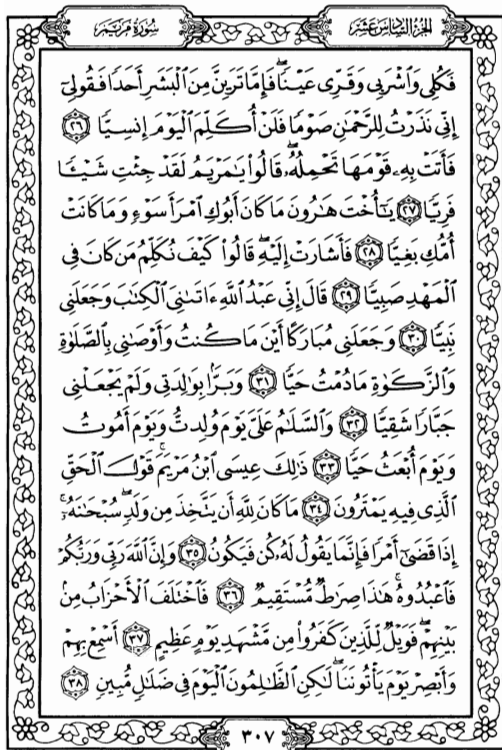 الجزء السادس عشر
سورة مريم
فَكُلِي وَٱشْرَبِي وَقَرِّي عَيْنٗاۖ فَإِمَّا تَرَيِنَّ مِنَ ٱلْبَشَرِ أَحَدٗا فَقُولِيٓ
إِنِّي نَذَرْتُ لِلرَّحْمَٰنِ صَوْمٗا فَلَنْ أُكَلِّمَ ٱلْيَوْمَ إِنسِيّٗا ٢٦
فَأَتَتْ بِهِۦ قَوْمَهَا تَحْمِلُهُۥۖ قَالُوا۟ يَٰمَرْيَمُ لَقَدْ جِئْتِ شَيْـٔٗا
فَرِيّٗا ٢٧ يَٰٓأُخْتَ هَٰرُونَ مَا كَانَ أَبُوكِ ٱمْرَأَ سَوْءٖ وَمَا كَانَتْ
أُمُّكِ بَغِيّٗا ٢٨ فَأَشَارَتْ إِلَيْهِۖ قَالُوا۟ كَيْفَ نُكَلِّمُ مَن كَانَ فِي
ٱلْمَهْدِ صَبِيّٗا ٢٩ قَالَ إِنِّي عَبْدُ ٱللَّهِ ءَاتَىٰنِيَ ٱلْكِتَٰبَ وَجَعَلَنِي
نَبِيّٗا ٣٠ وَجَعَلَنِي مُبَارَكًا أَيْنَ مَا كُنتُ وَأَوْصَٰنِي بِٱلصَّلَوٰةِ
وَٱلزَّكَوٰةِ مَا دُمْتُ حَيّٗا ٣١ وَبَرَّۢا بِوَٰلِدَتِي وَلَمْ يَجْعَلْنِي
جَبَّارٗا شَقِيّٗا ٣٢ وَٱلسَّلَٰمُ عَلَيَّ يَوْمَ وُلِدتُّ وَيَوْمَ أَمُوتُ
وَيَوْمَ أُبْعَثُ حَيّٗا ٣٣ ذَٰلِكَ عِيسَى ٱبْنُ مَرْيَمَۚ قَوْلَ ٱلْحَقِّ
ٱلَّذِي فِيهِ يَمْتَرُونَ ٣٤ مَا كَانَ لِلَّهِ أَن يَتَّخِذَ مِن وَلَدٖۖ سُبْحَٰنَهُۥٓۚ
إِذَا قَضَىٰٓ أَمْرٗا فَإِنَّمَا يَقُولُ لَهُۥ كُن فَيَكُونُ ٣٥ وَإِنَّ ٱللَّهَ رَبِّي وَرَبُّكُمْ
فَٱعْبُدُوهُۚ هَٰذَا صِرَٰطٞ مُّسْتَقِيمٞ ٣٦ فَٱخْتَلَفَ ٱلْأَحْزَابُ مِنۢ
بَيْنِهِمْۖ فَوَيْلٞ لِّلَّذِينَ كَفَرُوا۟ مِن مَّشْهَدِ يَوْمٍ عَظِيمٍ ٣٧ أَسْمِعْ بِهِمْ
وَأَبْصِرْ يَوْمَ يَأْتُونَنَاۖ لَٰكِنِ ٱلظَّٰلِمُونَ ٱلْيَوْمَ فِي ضَلَٰلٖ مُّبِينٖ ٣٨
٣٠٧